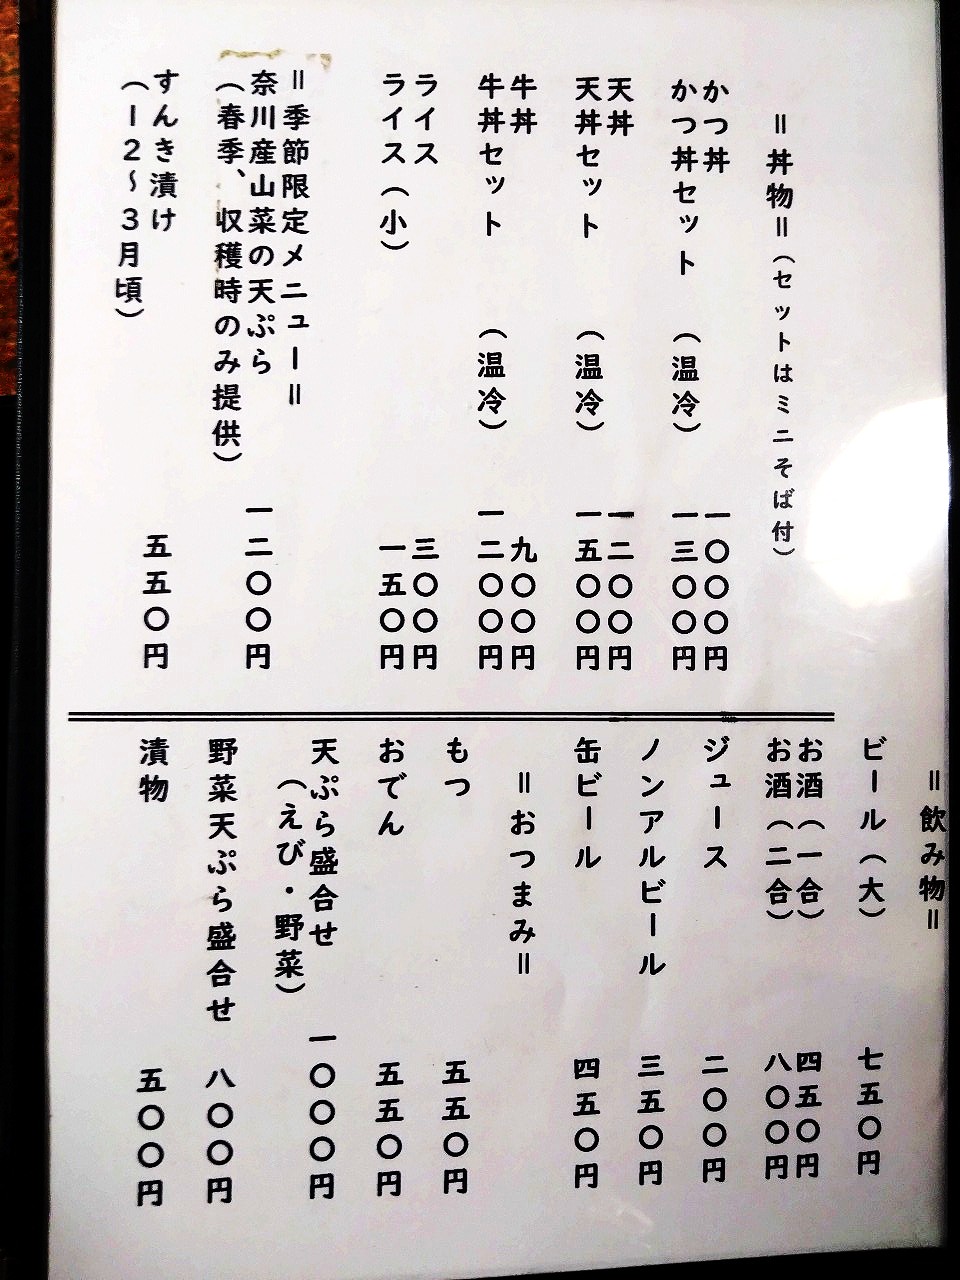 ＝丼物＝（セットはミニそば付）
かつ丼 一〇〇〇円
かつ丼セット （温冷） 一三〇〇円
天丼 一二〇〇円
天丼セット （温冷） 一五〇〇円
牛丼 九〇〇円
牛丼セット （温冷） 一二〇〇円
ライス 三〇〇円
ライス（小） 一五〇円
＝季節限定メニュー＝
奈川産山菜の天ぷら 一二〇〇円
（春季、収穫時のみ提供）
すんき漬け 五五〇円
（１２～３月頃）
＝飲み物＝
ビール（大） 七五〇円
お酒（一合） 四五〇円
お酒（二合） 八〇〇円
ジュース 二〇〇円
ノンアルビール 三五〇円
缶ビール 四五〇円
＝おつまみ＝
もつ 五五〇円
おでん 五五〇円
天ぷら盛合せ 一〇〇〇円
（えび・野菜）
野菜天ぷら盛合せ 八〇〇円
漬物 五〇〇円